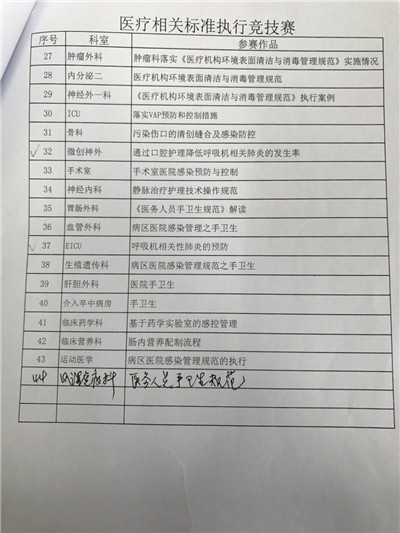 医疗相关标准执行竞技赛
序号 科室 参赛作品
27 肿瘤外科 肿瘤科落实《医疗机构环境表面清洁与消毒管理规范》实施情况
28 内分泌二 医疗机构环境表面清洁与消毒管理规范
29 神经外一科 《医疗机构环境表面清洁与消毒管理规范》执行案例
30 ICU 落实VAP预防和控制措施
31 骨科 污染伤口的清创缝合及感染防控
32 微创神外 通过口腔护理降低呼吸机相关肺炎的发生率
33 手术室 手术室医院感染预防与控制
34 神经内科 静脉治疗护理技术操作规范
35 胃肠外科 《医务人员手卫生规范》解读
36 血管外科 病区医院感染管理之手卫生
37 EICU 呼吸机相关性肺炎的预防
38 生殖遗传科 病区医院感染管理规范之手卫生
39 肝胆外科 医院手卫生
40 介入卒中病房 手卫生
41 临床药学科 基于药学实验室的感控管理
42 临床营养科 肠内营养配制流程
43 运动医学 病区医院感染管理规范的执行
44 风湿免疫科 医务人员手卫生规范